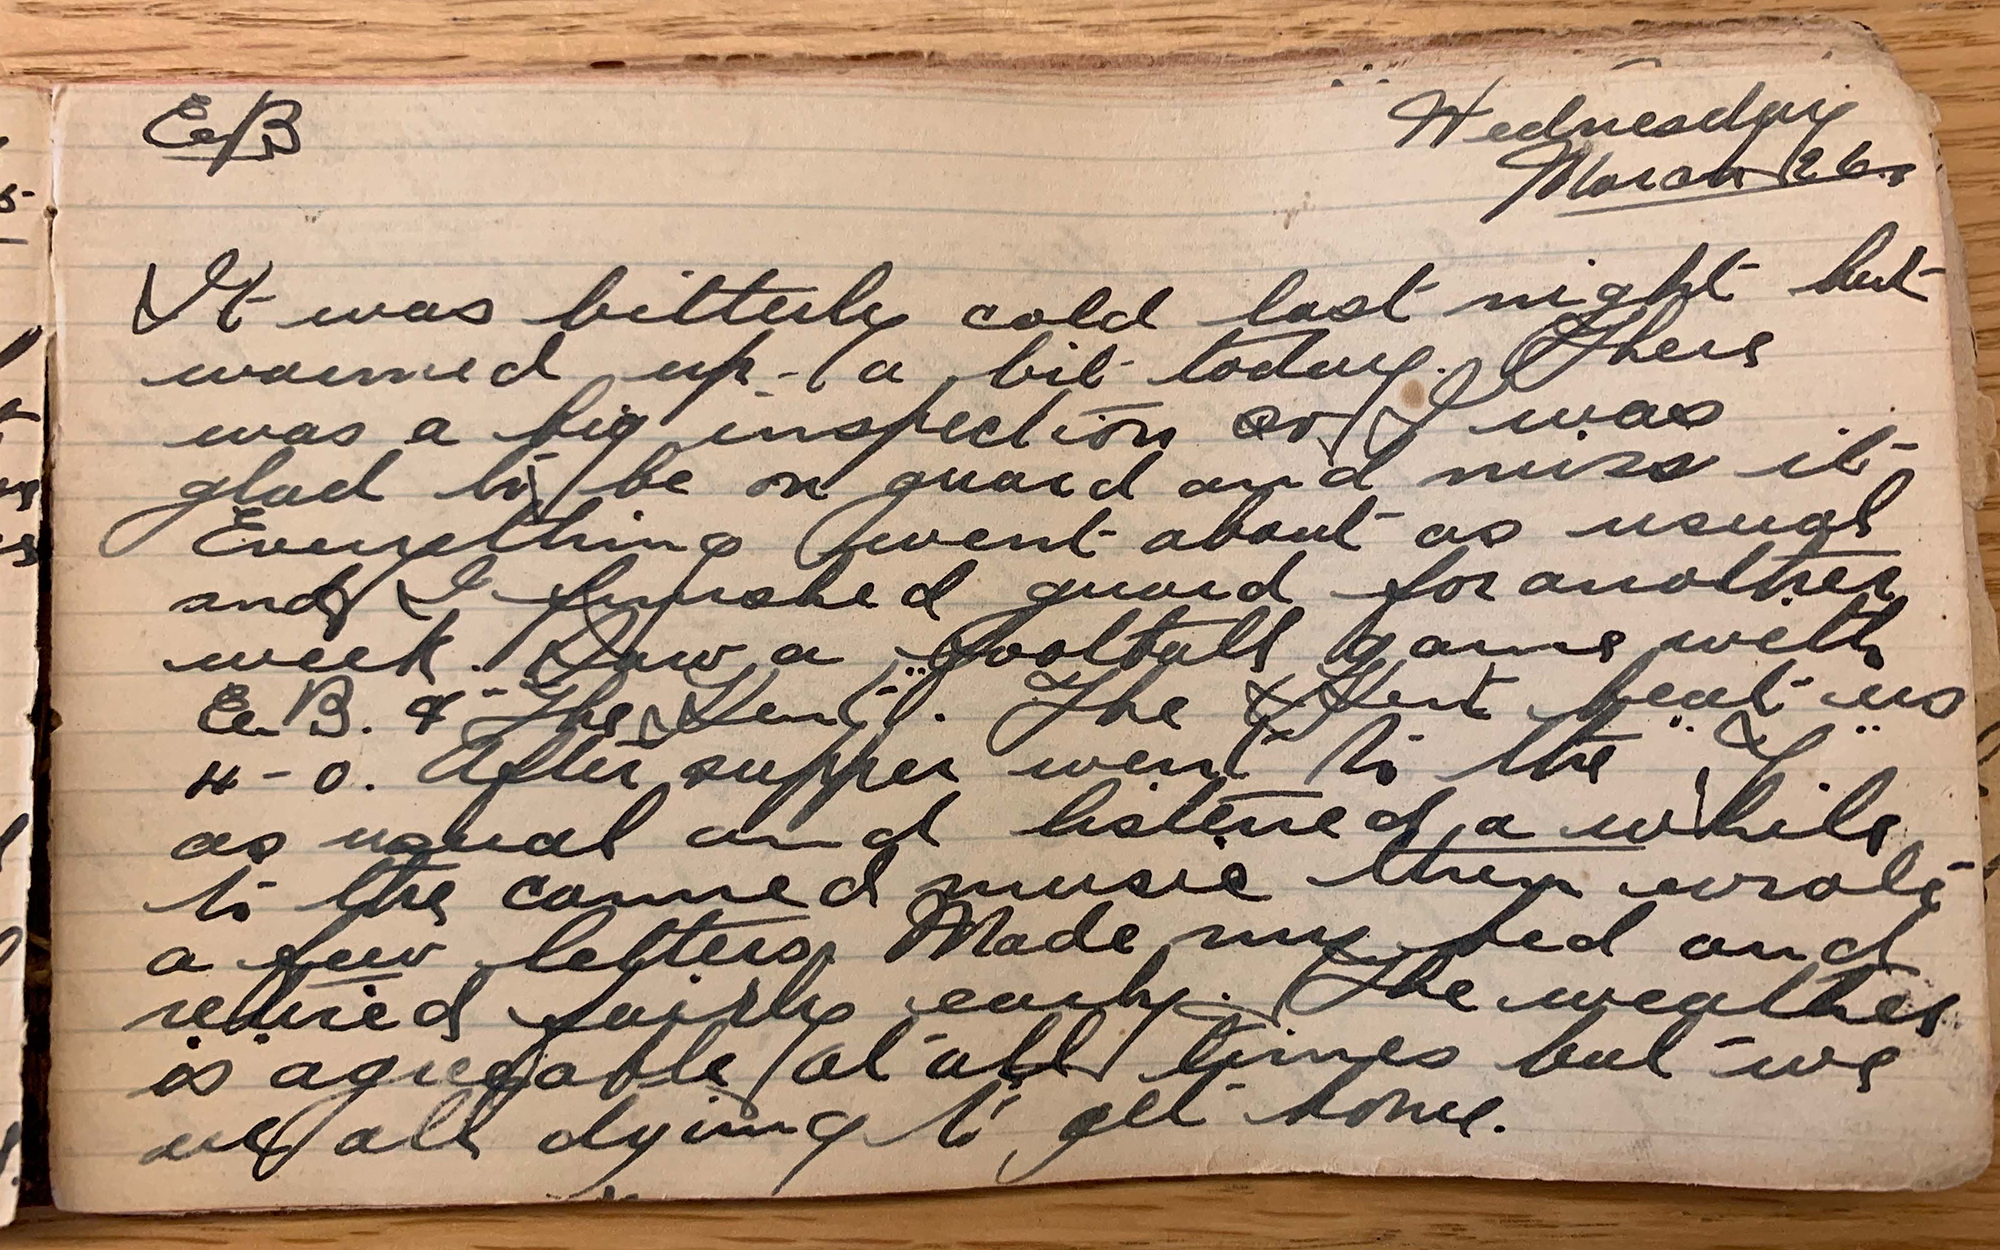 E.B Wednesday
March 26.
It was bitterly cold last night but
warmed up a bit today. There
was a big inspection so I was
glad to be on guard and miss it.
Everything went about as usual
and I finished guard for another
week. Saw a football game with
E.B. & "The Kent". The Kent beat us
4-0. After supper went to the "Y"
as usual and listened a while
to the canned music then wrote
a few letters. Made my bed and
retired fairly early. The weather
is agreeable at all times but we
are all dying to get home.